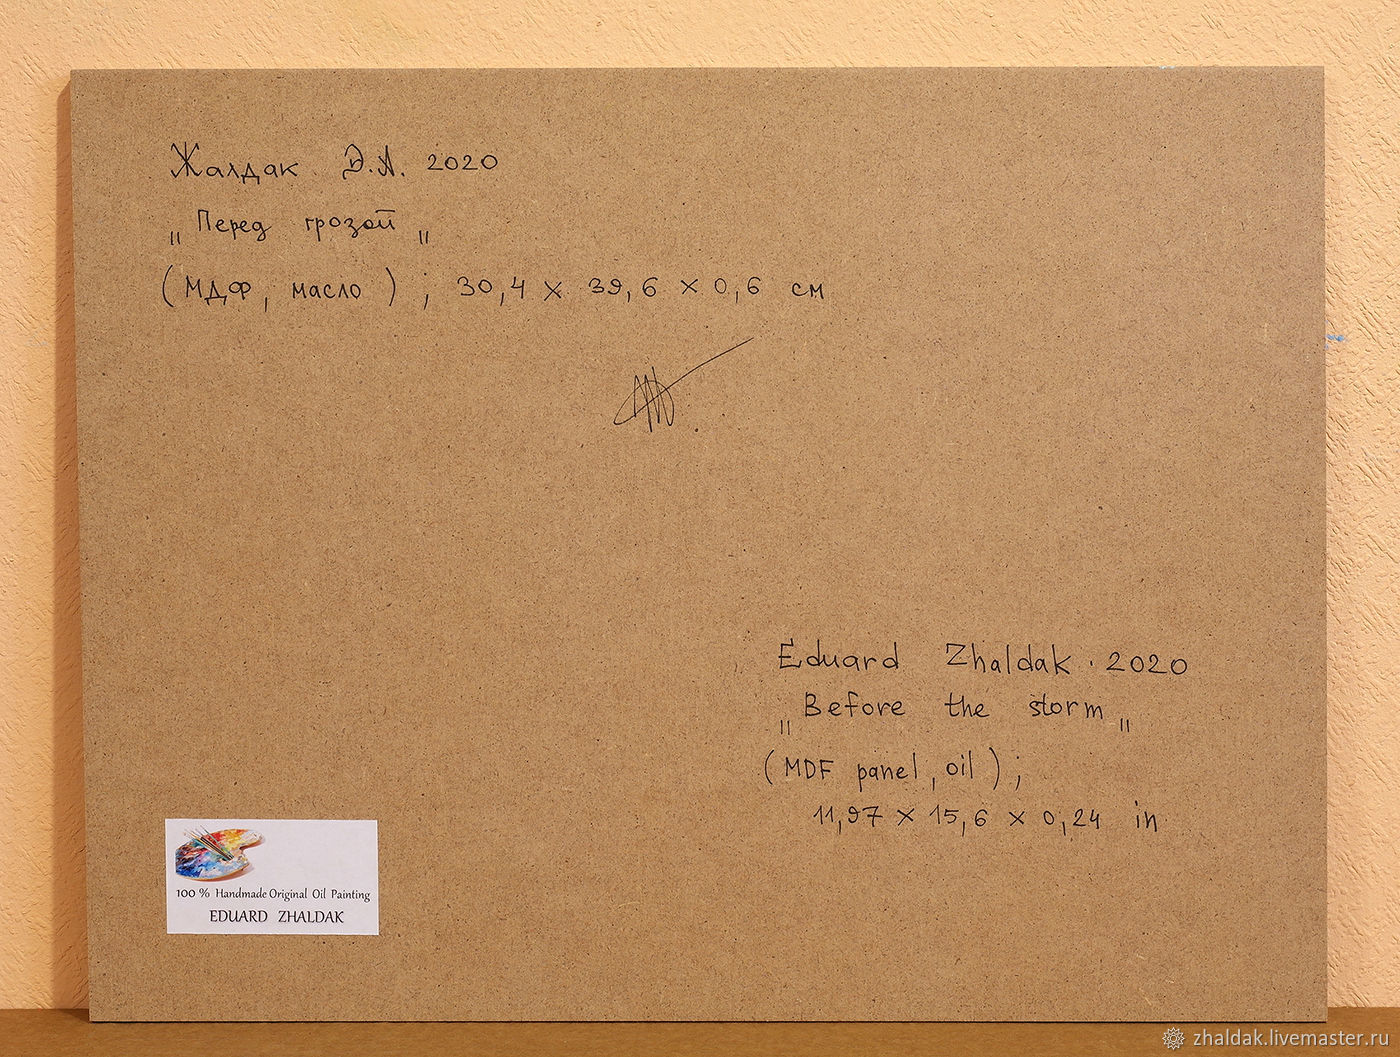 Жалдак Э.А. 2020
„Перед грозой„
(МДФ, масло) ; 30,4 x 39,6 x 0,6 см
Eduard Zhaldak. 2020
„Before the storm„
(MDF panel, oil) ;
11,97 x 15,6 x 0,24 in
100 % Handmade Original Oil Painting
EDUARD ZHALDAK
zhaldak.livemaster.ru